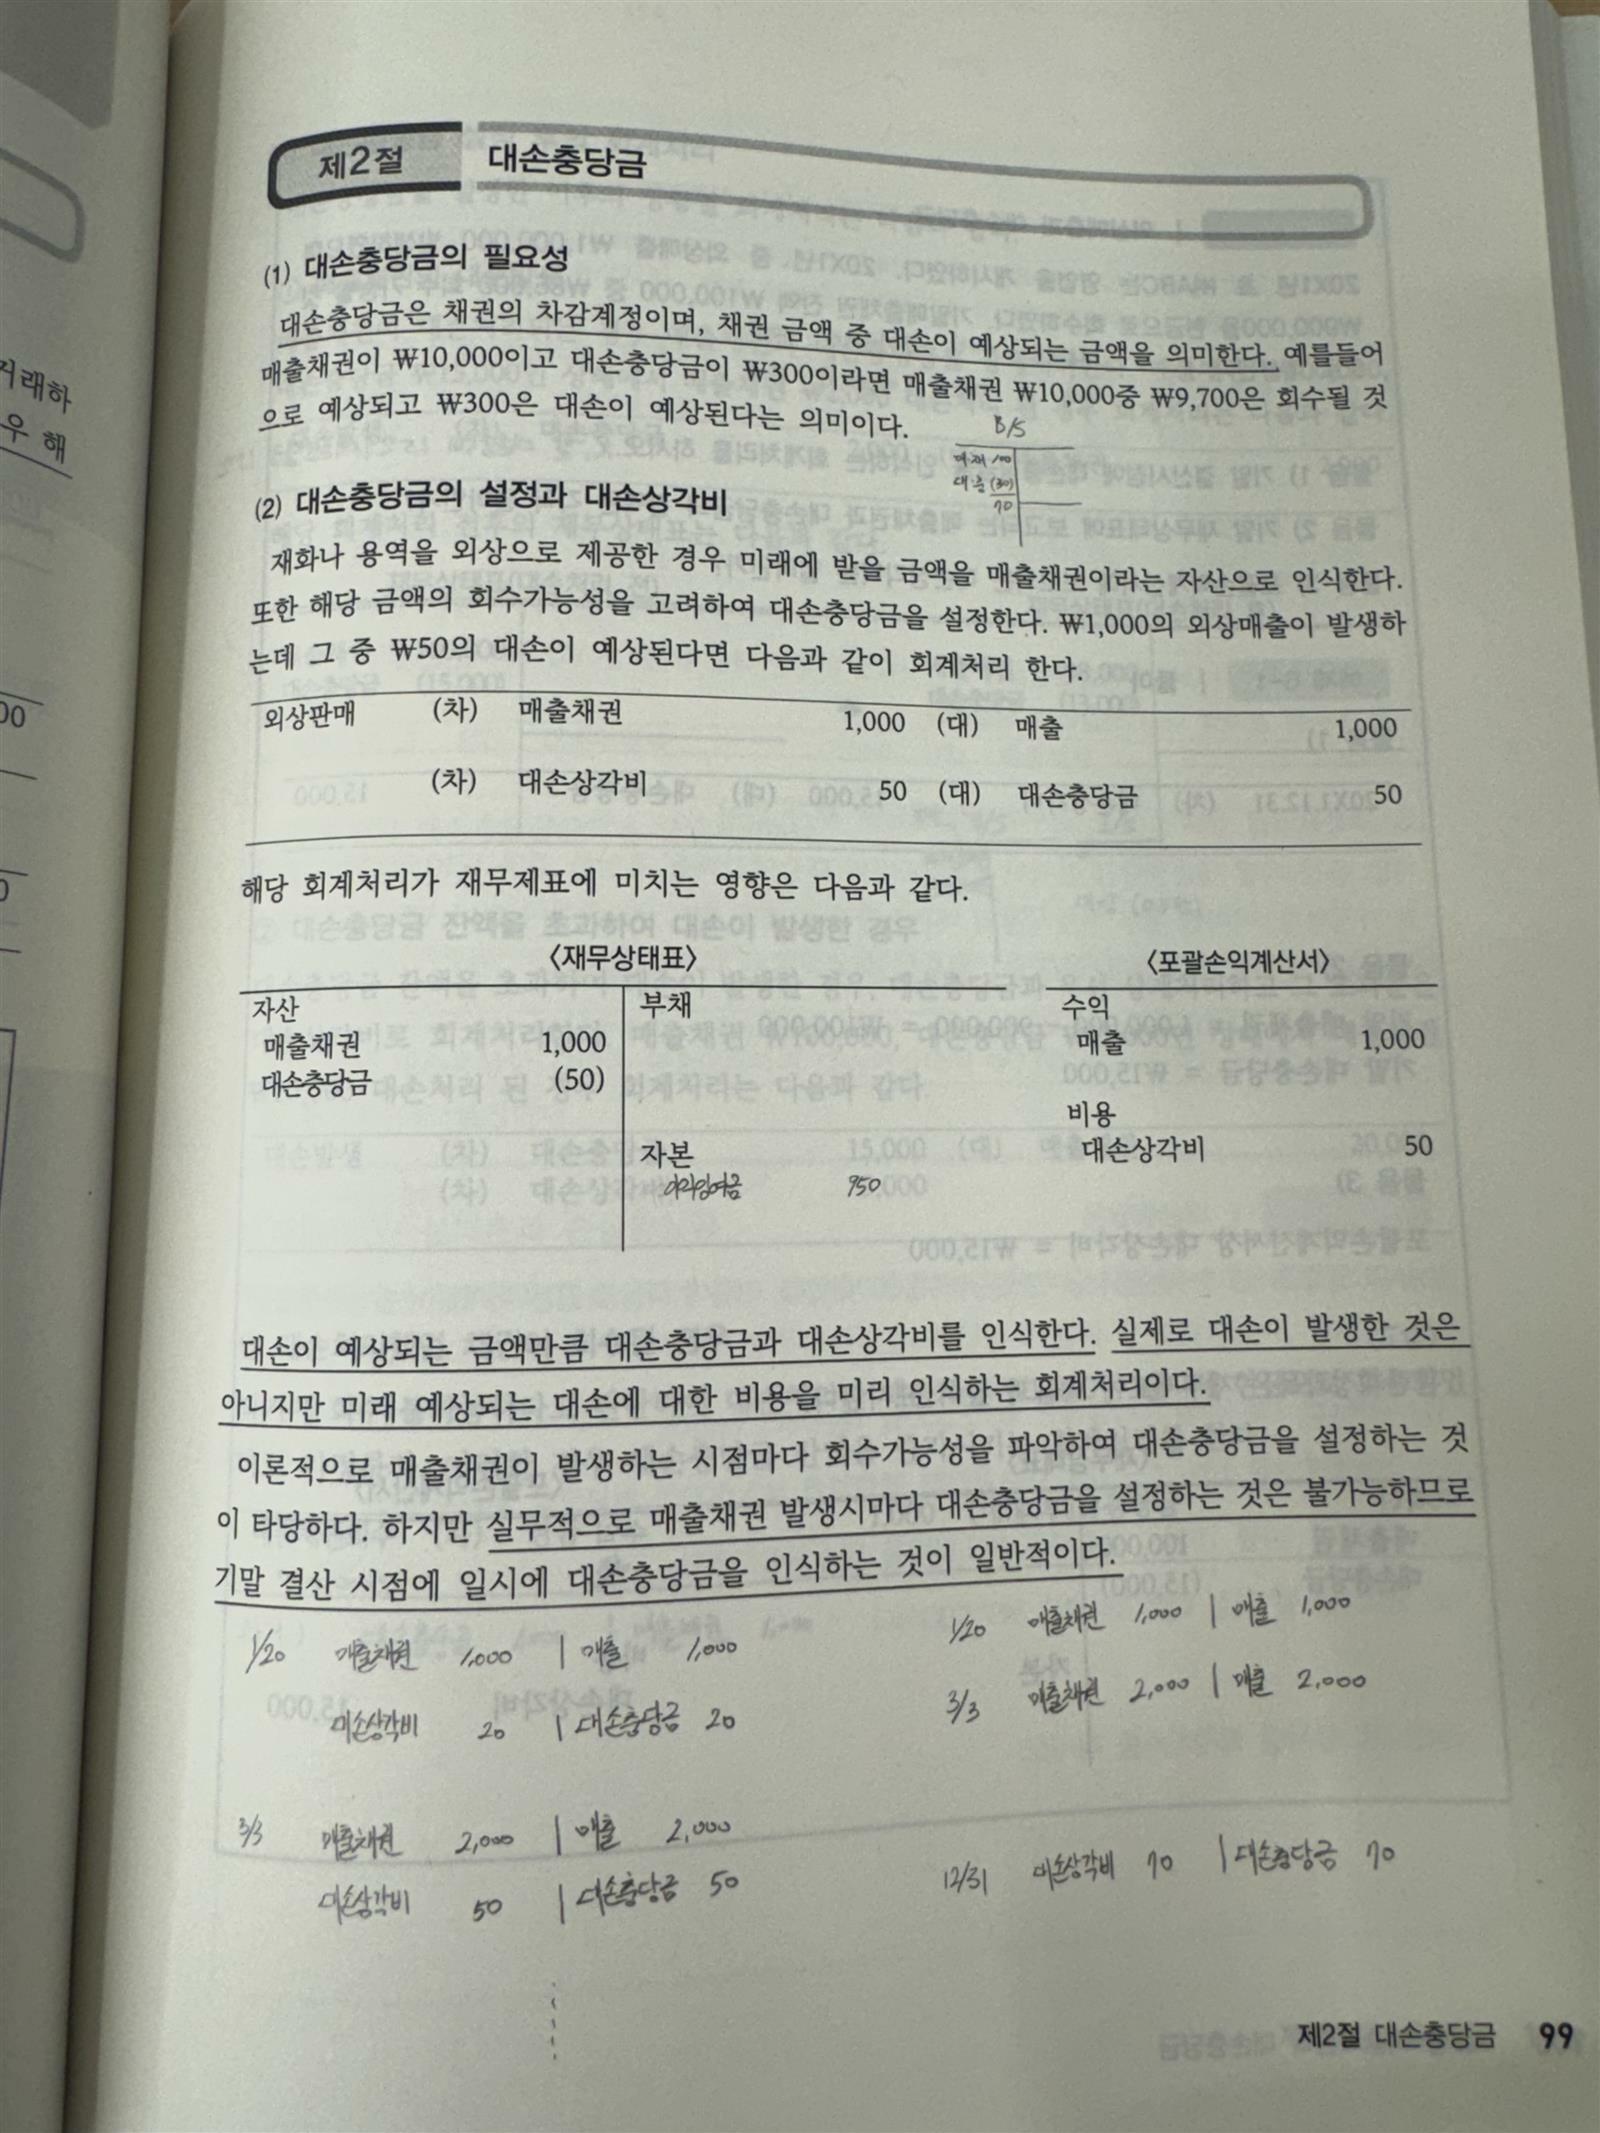 거래하
우 해
00
0
제2절 대손충당금
(1) 대손충당금의 필요성
대손충당금은 채권의 차감계정이며, 채권 금액 중 대손이 예상되는 금액을 의미한다. 예를들어
매출채권이 ₩10,000이고 대손충당금이 ₩300이라면 매출채권 ₩10,000중 ₩9,700은 회수될 것
으로 예상되고 ₩300은 대손이 예상된다는 의미이다.
B/S
매채 100
대충 (30)
70
(2) 대손충당금의 설정과 대손상각비
재화나 용역을 외상으로 제공한 경우 미래에 받을 금액을 매출채권이라는 자산으로 인식한다.
또한 해당 금액의 회수가능성을 고려하여 대손충당금을 설정한다. ₩1,000의 외상매출이 발생하
는데 그 중 ₩50의 대손이 예상된다면 다음과 같이 회계처리 한다.
외상판매 (차) 매출채권 1,000 (대) 매출 1,000
(차) 대손상각비 50 (대) 대손충당금 50
해당 회계처리가 재무제표에 미치는 영향은 다음과 같다.
<재무상태표> <포괄손익계산서>
자산 부채 수익
매출채권 1,000 매출 1,000
대손충당금 (50)
비용
자본 대손상각비 50
이익잉여금 950
대손이 예상되는 금액만큼 대손충당금과 대손상각비를 인식한다. 실제로 대손이 발생한 것은
아니지만 미래 예상되는 대손에 대한 비용을 미리 인식하는 회계처리이다.
이론적으로 매출채권이 발생하는 시점마다 회수가능성을 파악하여 대손충당금을 설정하는 것
이 타당하다. 하지만 실무적으로 매출채권 발생시마다 대손충당금을 설정하는 것은 불가능하므로
기말 결산 시점에 일시에 대손충당금을 인식하는 것이 일반적이다.
1/20 매출채권 1,000 | 매출 1,000
대손상각비 20 | 대손충당금 20
3/3 매출채권 2,000 | 매출 2,000
대손상각비 50 | 대손충당금 50
1/20 매출채권 1,000 | 매출 1,000
3/3 매출채권 2,000 | 매출 2,000
12/31 대손상각비 70 | 대손충당금 70
제2절 대손충당금 99